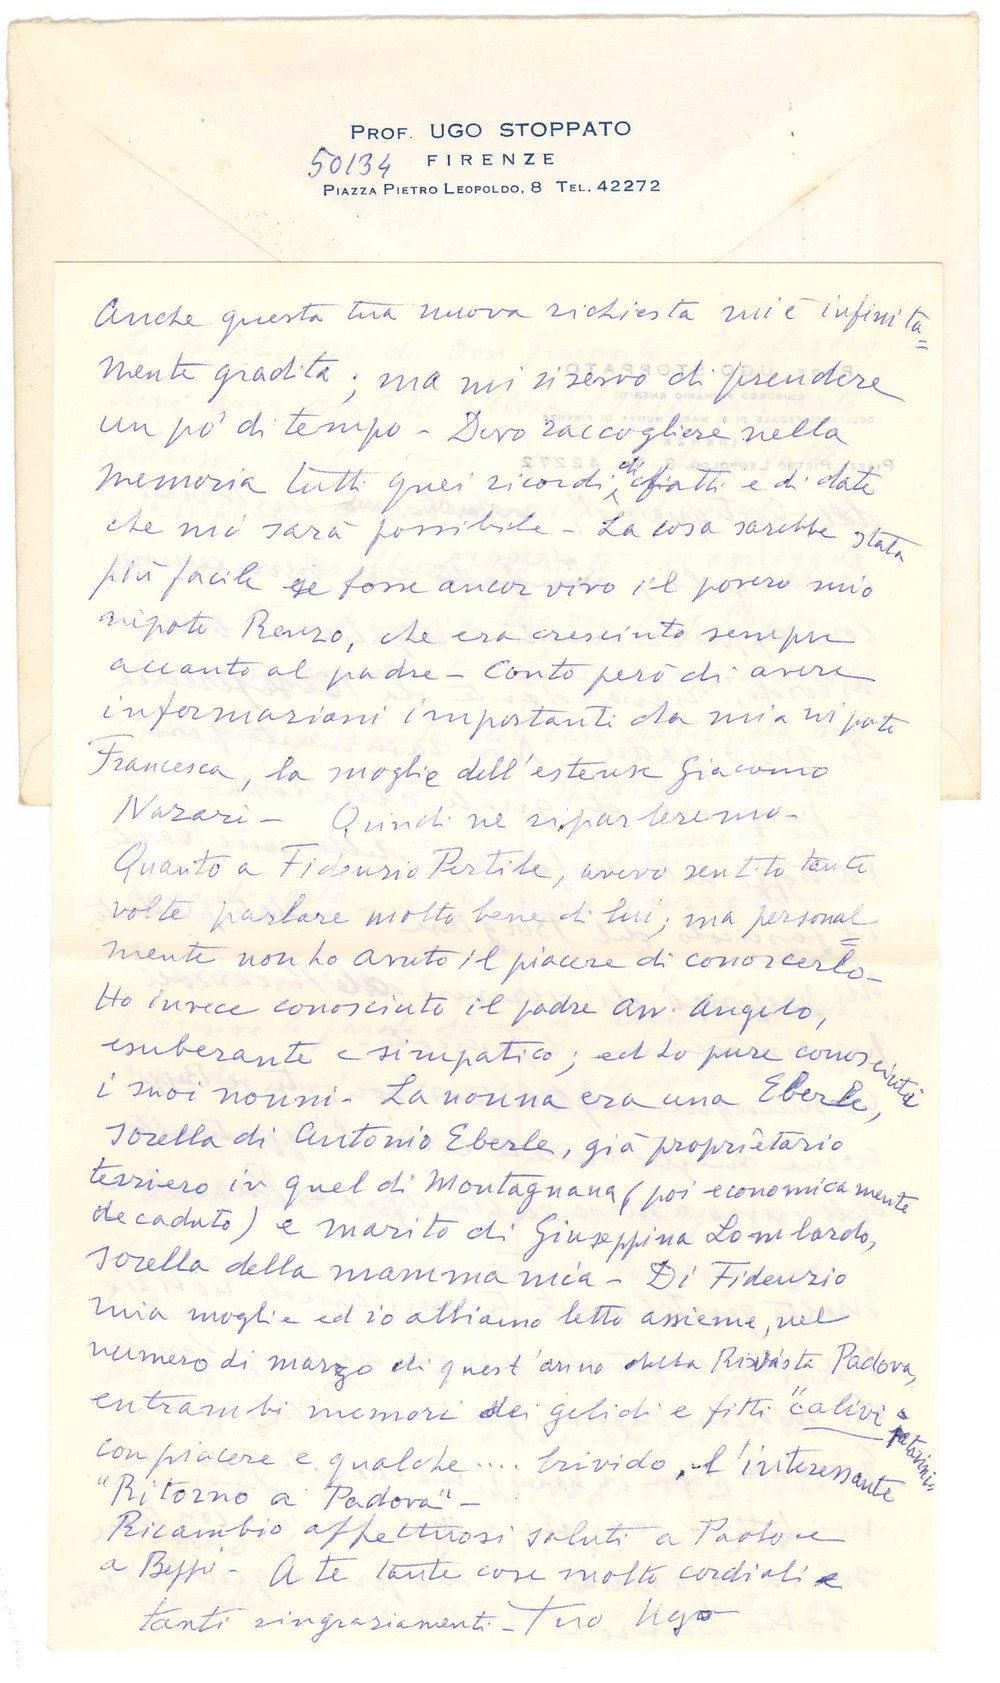 PROF. UGO STOPPATO
50134 FIRENZE
PIAZZA PIETRO LEOPOLDO, 8 TEL. 42272
Anche questa tua nuova richiesta mi è infinita=
mente gradita; ma mi riservo di prendere
un po' di tempo - Devo raccogliere nella
memoria tutti quei ricordi, di fatti e di date
che mi sarà possibile - La cosa sarebbe stata
più facile se fosse ancor vivo il povero mio
nipote Renzo, che era cresciuto sempre
accanto al padre - Conto però di avere
informazioni importanti da mia nipote
Francesca, la moglie dell'estense Giacomo
Nazari - Quindi ne riparleremo -
Quanto a Fidenzio Pertile, avevo sentito tante
volte parlare molto bene di lui; ma personal=
mente non ho avuto il piacere di conoscerlo -
Ho invece conosciuto il padre avv. Angelo,
esuberante e simpatico; ed ho pure conosciuti
i suoi nonni - La nonna era una Eberle,
sorella di Antonio Eberle, già proprietario
terriero in quel di Montagnana (poi economicamente
decaduto) e marito di Giuseppina Lombardo,
sorella della mamma mia - Di Fidenzio
mia moglie ed io abbiamo letto assieme, nel
numero di marzo di quest'anno della Rivista Padova,
entrambi memori dei gelidi e fitti "calivi"
con piacere e qualche .... brivido, l'interessante
"Ritorno a Padova" -
Ricambio affettuosi saluti a Paolo e
a Beppi - A te tante cose molto cordiali e
tanti ringraziamenti - Tuo Ugo